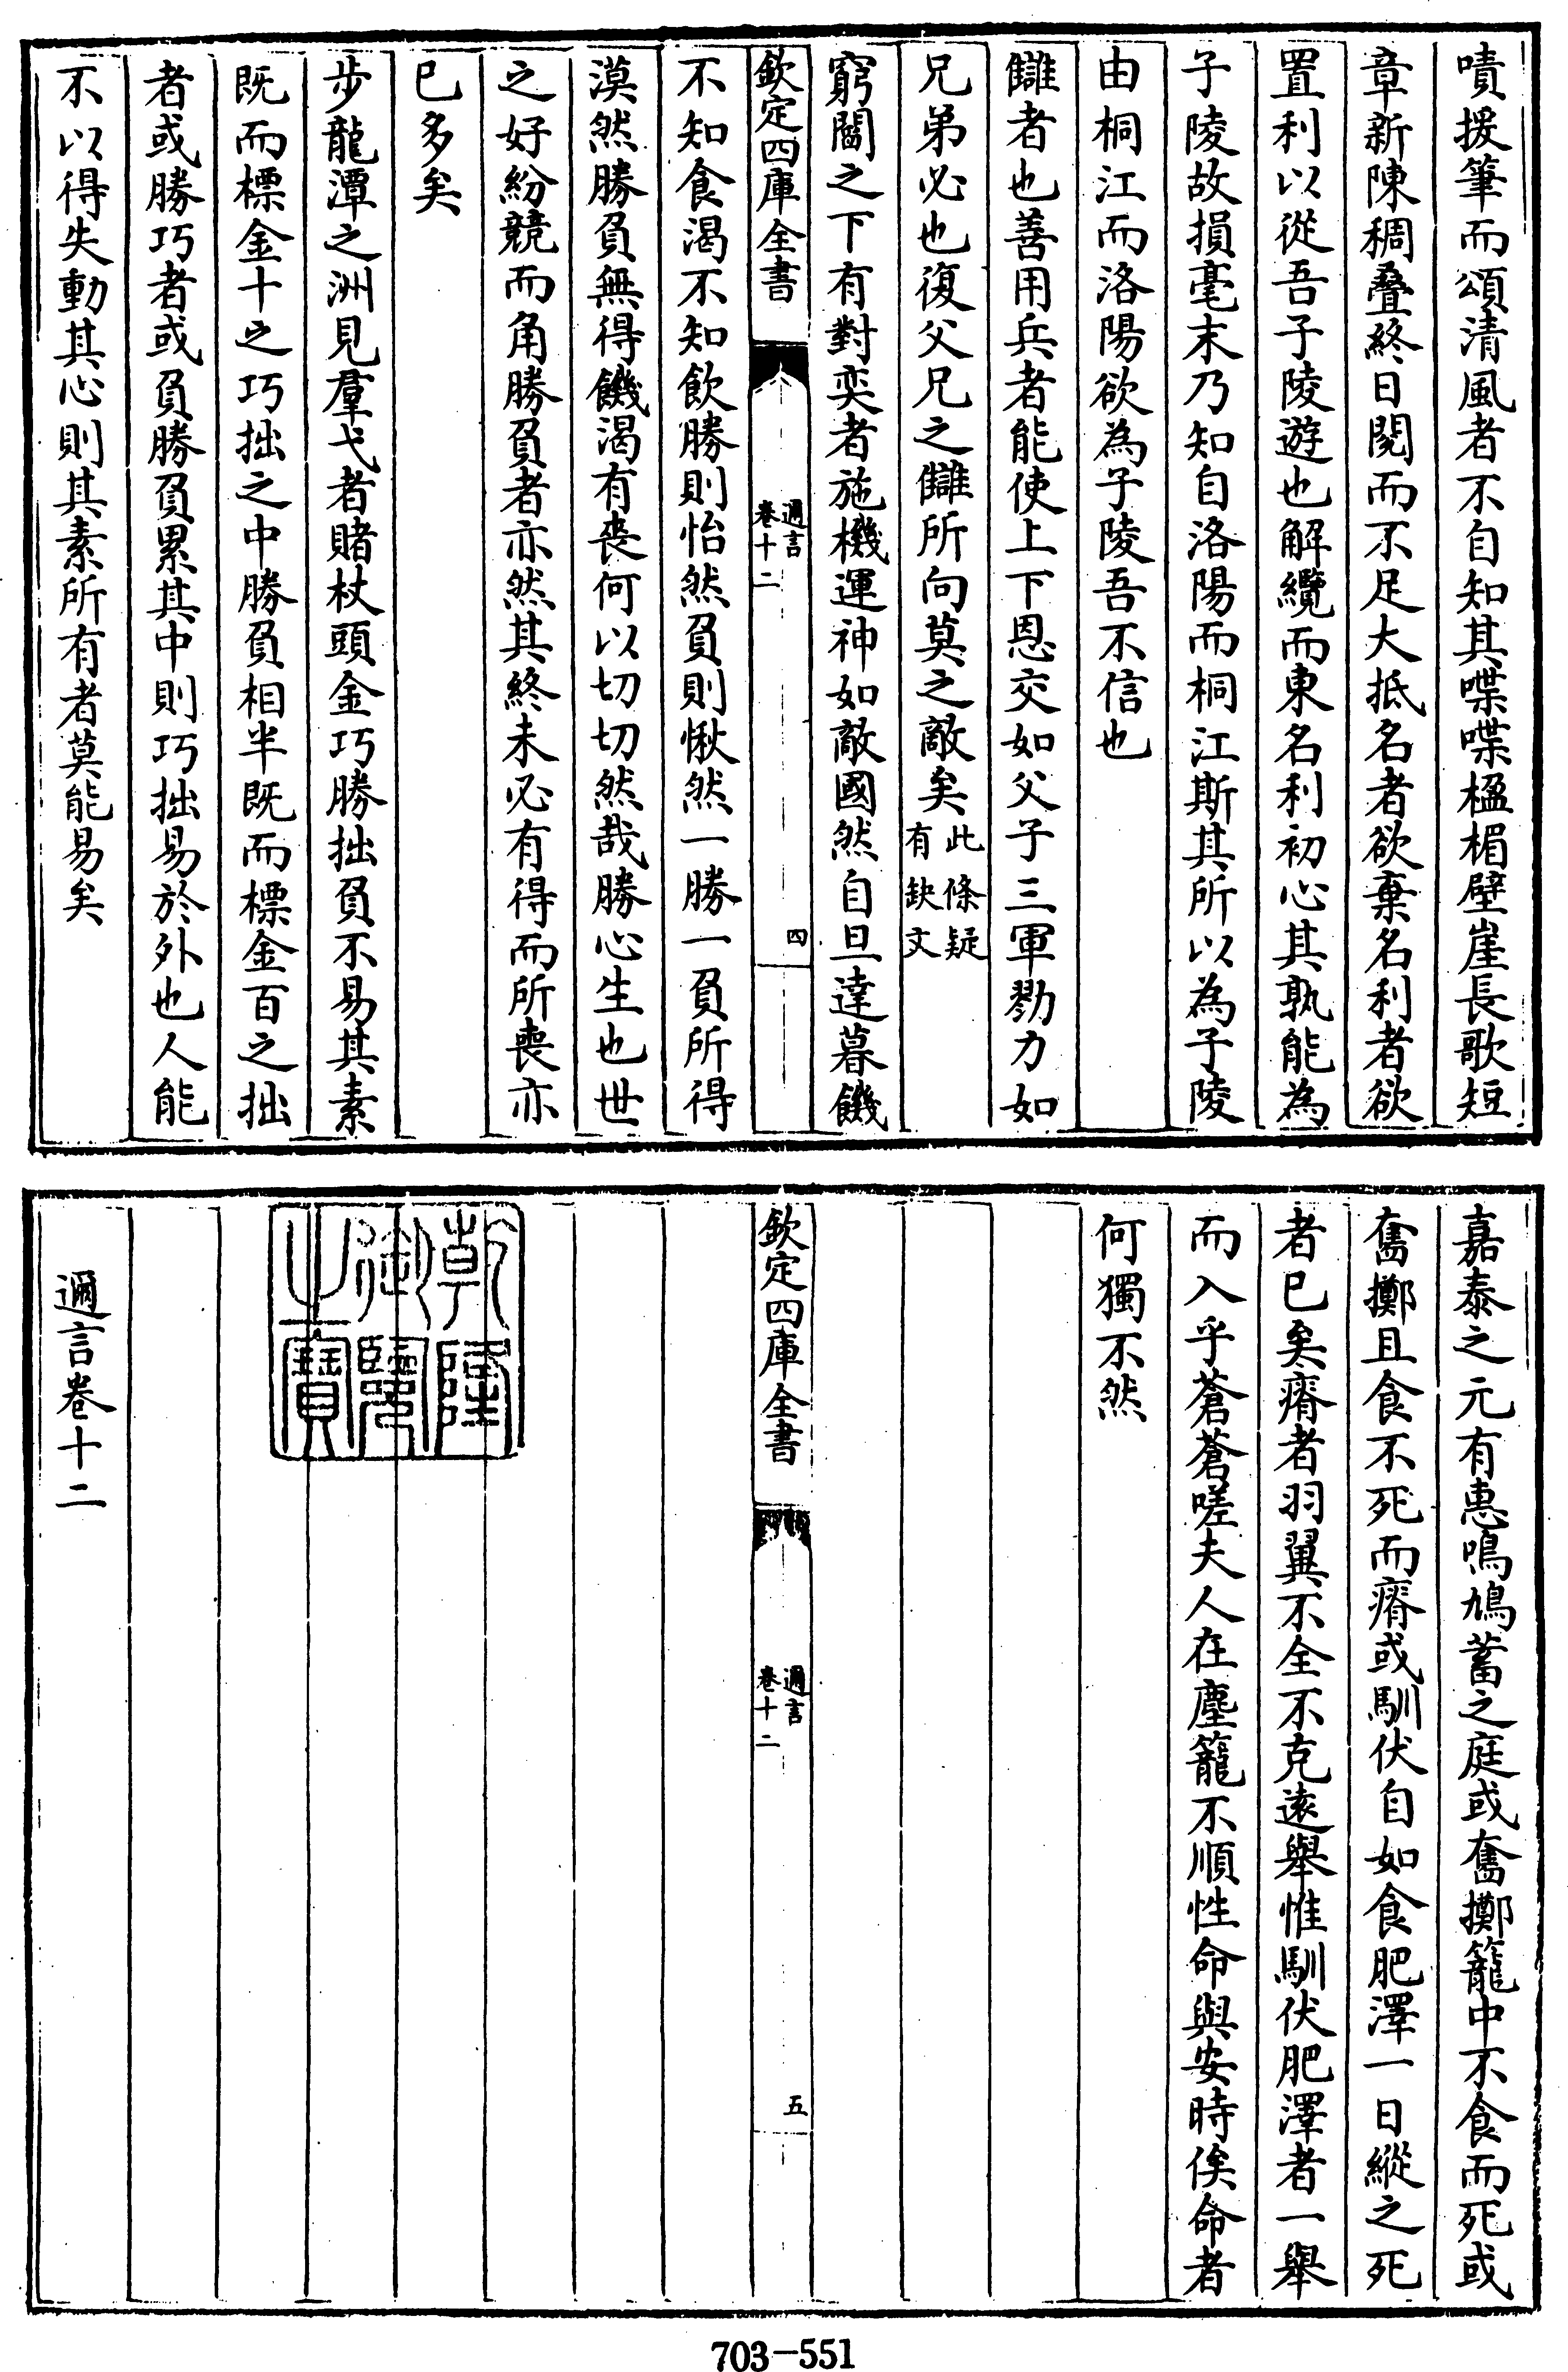 嘖援筆而頌清風者不自知其喋喋楹楣壁崖長歌短
章新陳稠疊終日閱而不足大抵名者欲棄名利者欲
置利以從吾子陵遊也解纜而東名利初心其孰能為
子陵故損毫末乃知自洛陽而桐江斯其所以為子陵
由桐江而洛陽欲為子陵吾不信也
讎者也善用兵者能使上下恩交如父子三軍勠力如
兄弟必也復父兄之讎所向莫之敵矣此條疑有缺文
窮閻之下有對奕者施機運神如敵國然自旦達暮饑
欽定四庫全書 邇言 卷十二 四
不知食渴不知飲勝則怡然負則愀然一勝一負所得
漠然勝負無得饑渴有喪何以切切然哉勝心生也世
之好紛競而角勝負者亦然其終未必有得而所喪亦
已多矣
步龍潭之洲見羣弋者賭杖頭金巧勝拙負不易其素
既而標金十之巧拙之中勝負相半既而標金百之拙
者或勝巧者或負勝負累其中則巧拙易於外也人能
不以得失動其心則其素所有者莫能易矣
嘉泰之元有惠鳴鳩蓄之庭或奮擲籠中不食而死或
奮擲且食不死而瘠或馴伏自如食肥澤一日縱之死
者已矣瘠者羽翼不全不克遠舉惟馴伏肥澤者一舉
而入乎蒼蒼嗟夫人在塵籠不順性命與安時俟命者
何獨不然
欽定四庫全書 邇言 卷十二 五
乾隆御覽之寶
邇言卷十二
703-551